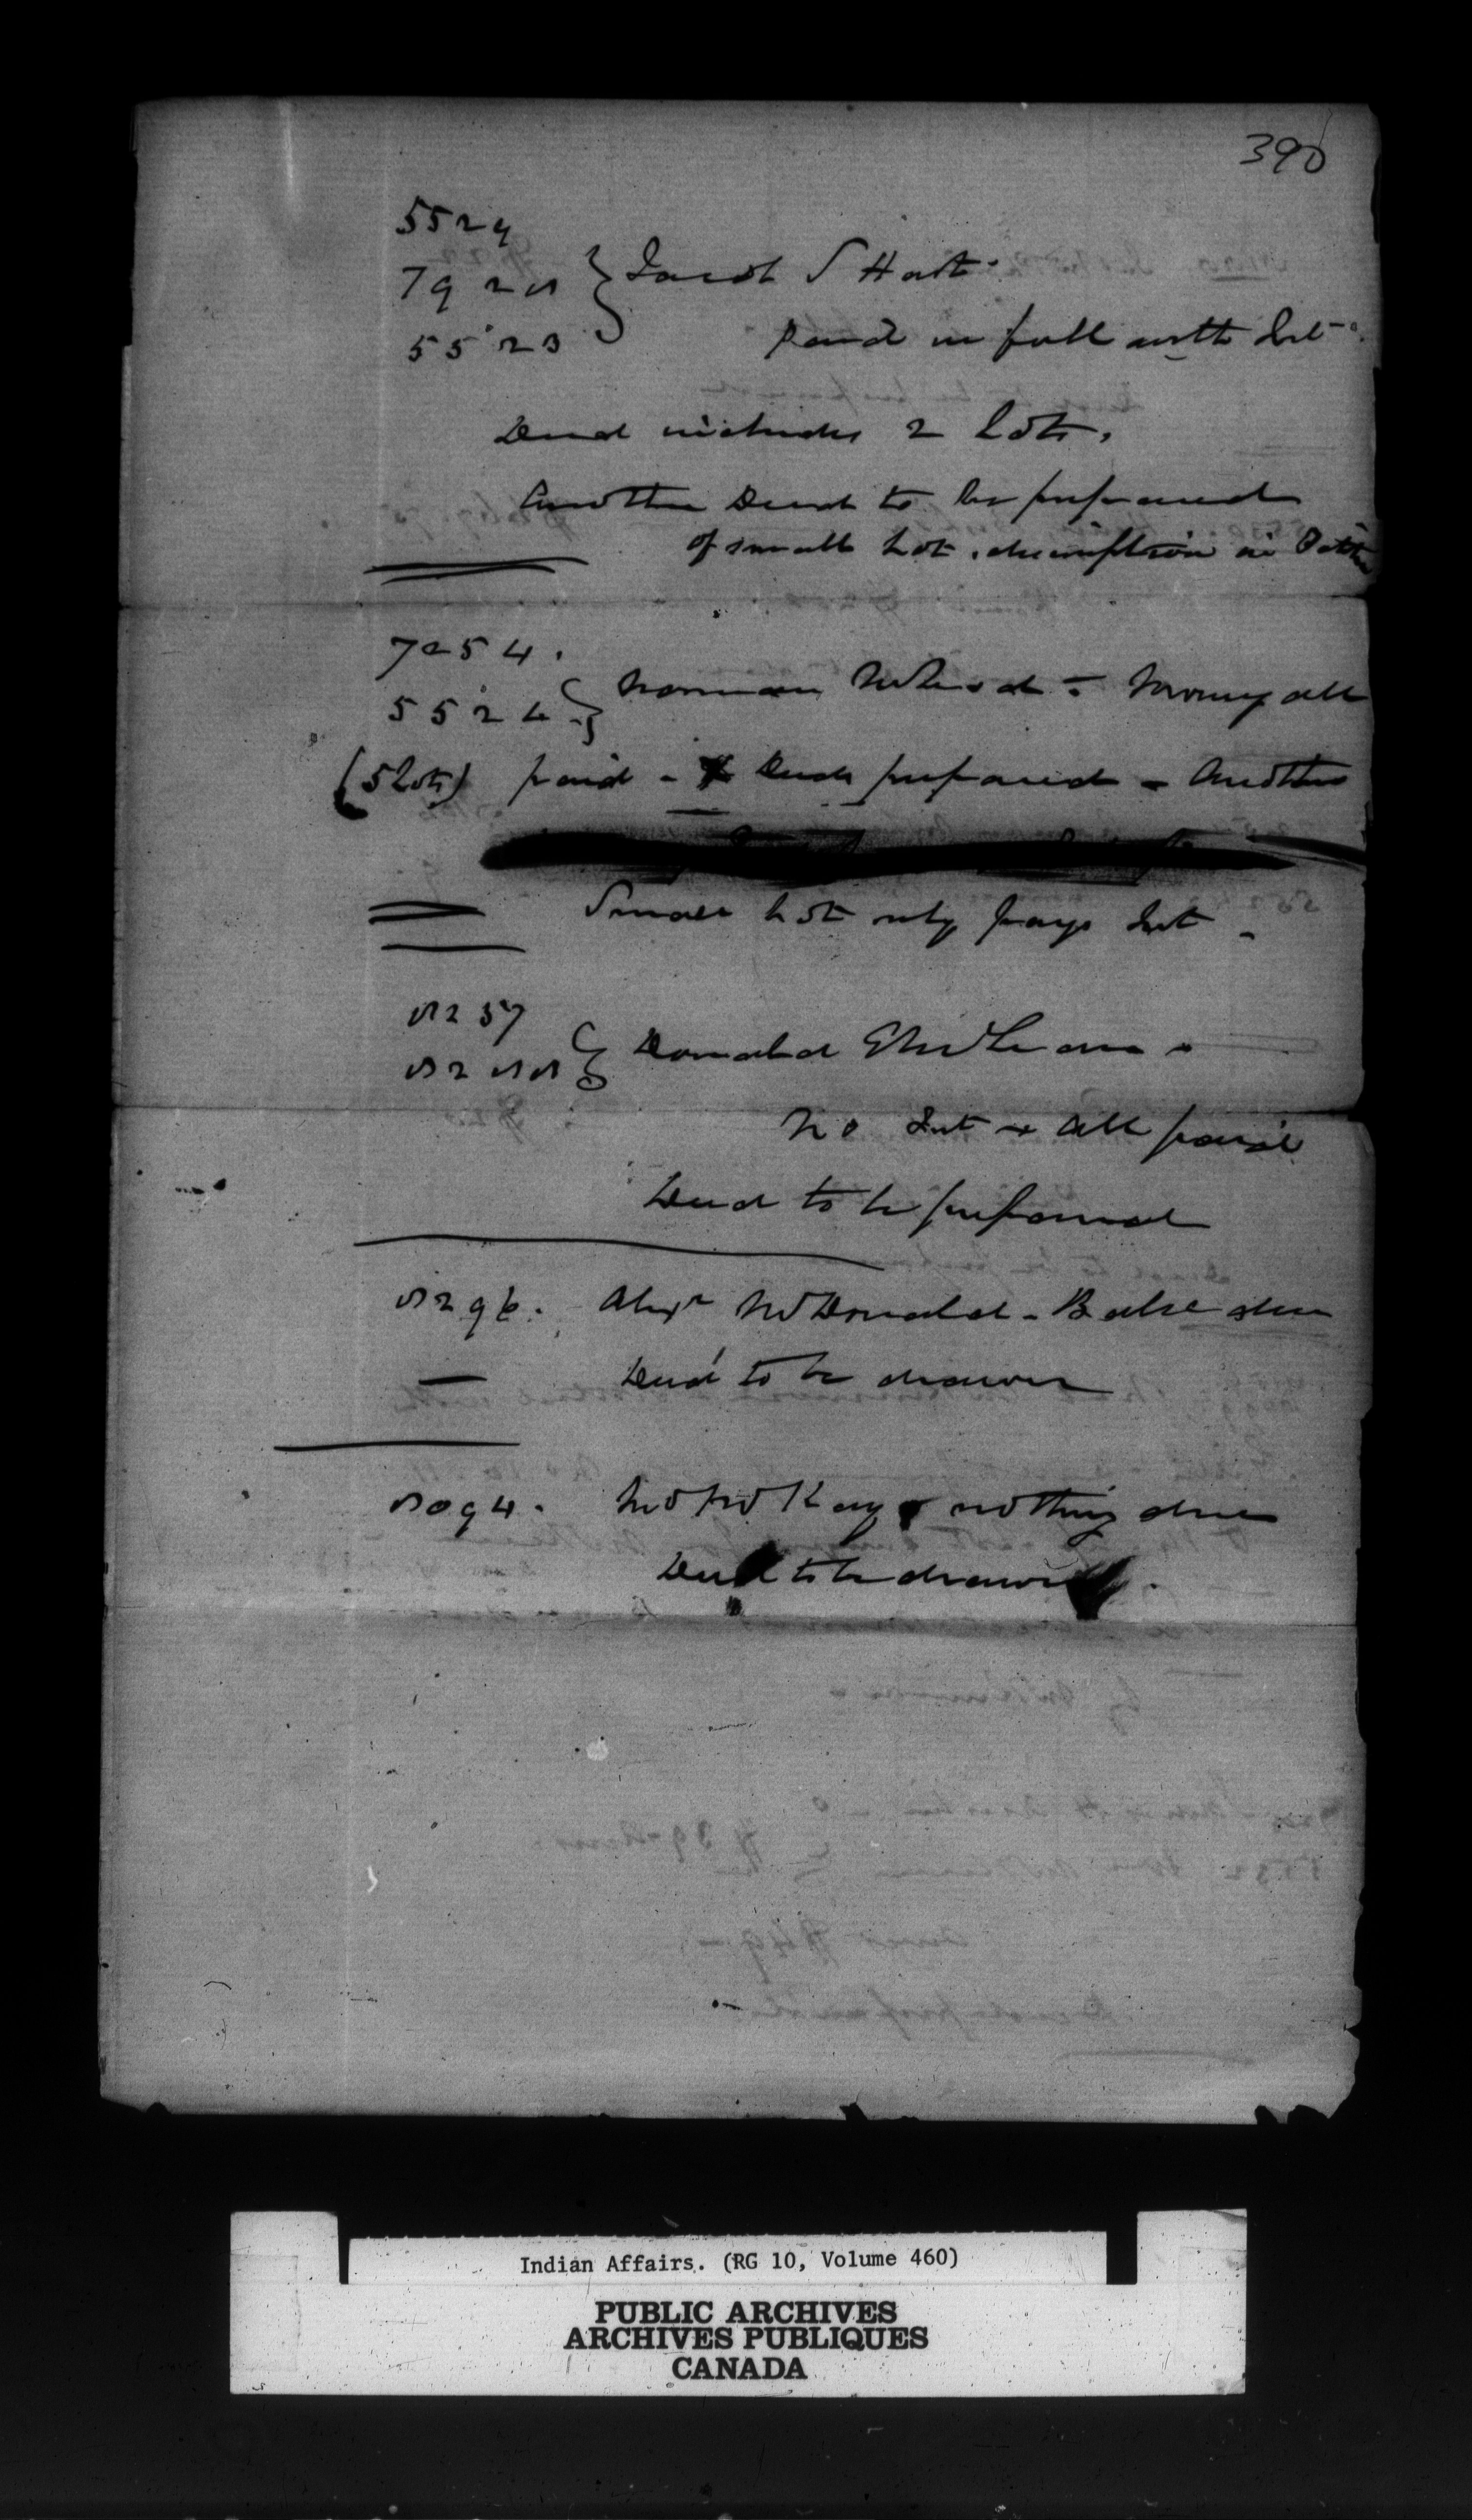 390
5529
7925 } Jacob S Hart
5523 Paid in full with Int
Deed includes 2 lots.
Another Deed to be prepared
of small lot. description in Patent
7254.
5524 } Norman McLeod - Money all
(5 lots) paid - Deeds prepared - Another
Small lot only pays Int -
5237
5255 } Donald McLean
No Int & all paid
Deed to be prepared
5296. Alexr McDonald - Balce due
Deed to be drawn
5094. McKay nothing due
Deed to be drawn.
Indian Affairs. (RG 10, Volume 460)
PUBLIC ARCHIVES
ARCHIVES PUBLIQUES
CANADA